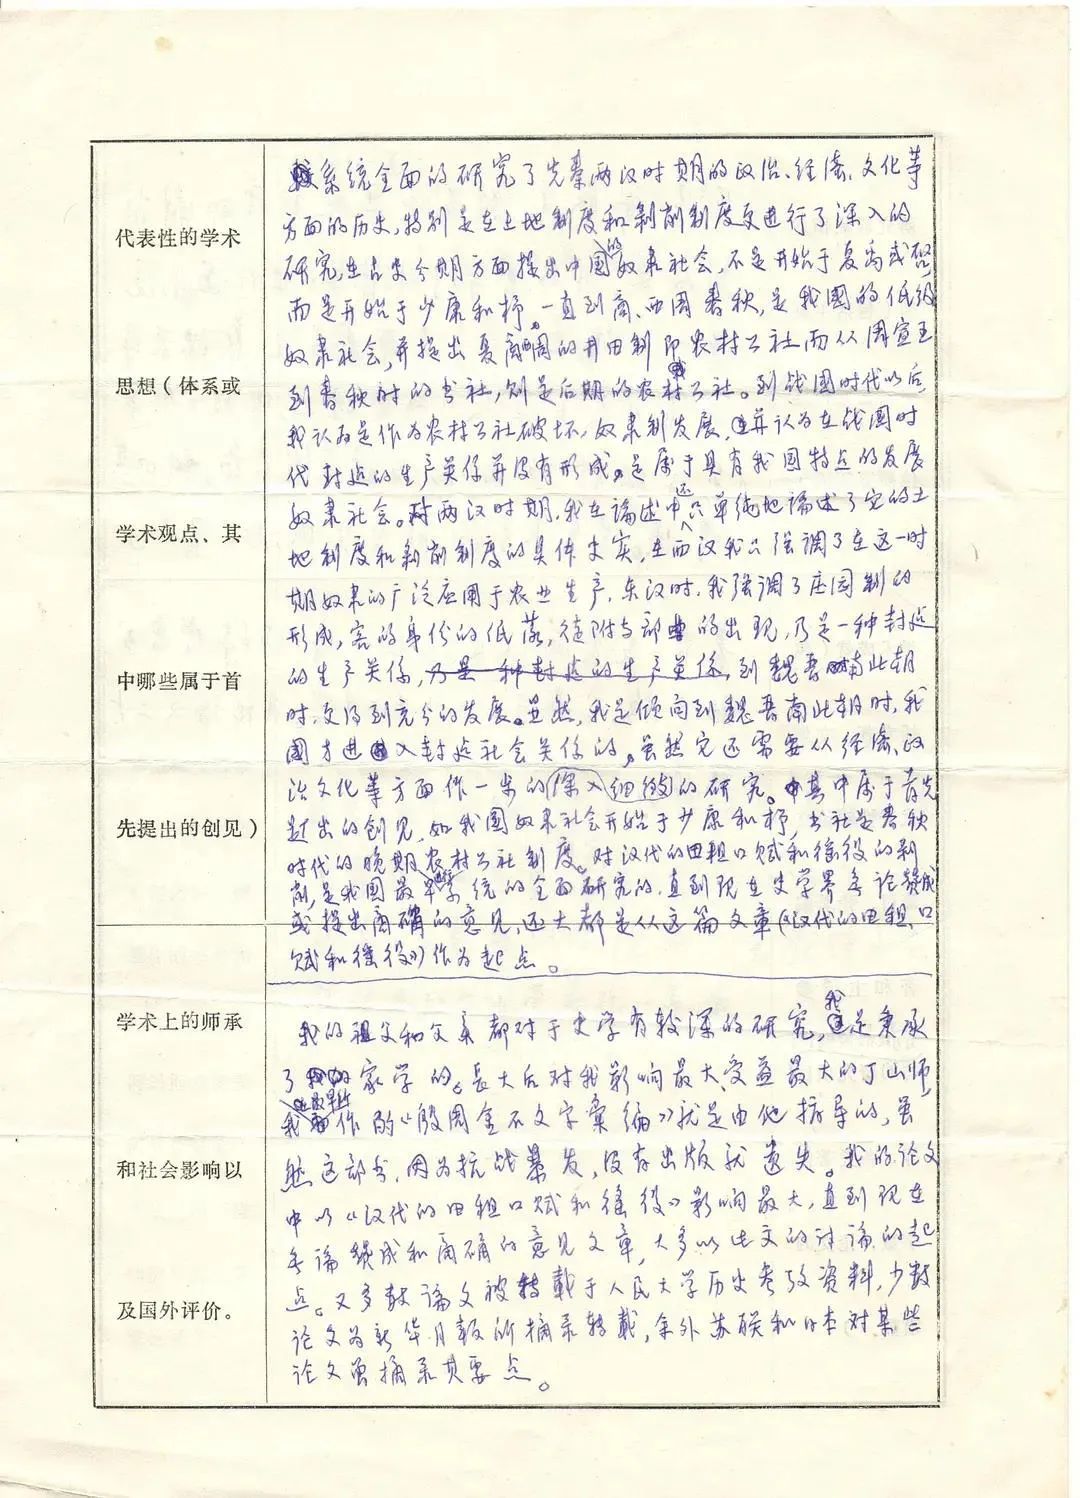 代表性的学术
思想（体系或
学术观点、其
中哪些属于首
先提出的创见）
较系统全面的研究了先秦两汉时期的政治、经济、文化等
方面的历史,特别是在土地制度和剥削制度更进行了深入的
研究,在古史分期方面提出中国的奴隶社会,不是开始于夏禹或启,
而是开始于少康和杼。一直到商、西周春秋,是我国的低级
奴隶社会,并提出夏商周的井田制即农村公社而从周宣王
到春秋时的书社,则是后期的农村公社。到战国时代以后,
我认为是作为农村公社破坏,奴隶制发展,并认为在战国时
代封建的生产关系并没有形成,是属于具有我国特点的发展
奴隶社会。对两汉时期,我在论述中还只单纯地论述了它的土
地制度和剥削制度的具体史实,在西汉我只强调了在这一时
期奴隶的广泛应用于农业生产,东汉时,我强调了庄园制的
形成,客的身份的低落,徒附与部曲的出现,乃是一种封建
的生产关系,乃是一种封建的生产关系,到魏晋南北朝
时,更得到充分的发展。显然,我是倾向到魏晋南北朝时,我
国才进入封建社会关系的。虽然它还需要从经济、政
治文化等方面作一步的深入细致的研究。其中属于首先
提出的创见,如我国奴隶社会开始于少康和杼,书社是春秋
时代的晚期农村公社制度。对汉代的田租口赋和徭役的剥
削,是我国最早系统的全面研究的,直到现在史学界无论赞成
或提出商确的意见,还大都是从这篇文章(《汉代的田租、口
赋和徭役》)作为起点。
学术上的师承
和社会影响以
及国外评价。
我的祖父和父亲都对于史学有较深的研究,我是秉承
了家学的。长大后对我影响最大、受益最大的丁山师,
我最早所作的《殷周金石文字汇编》就是由他指导的,虽
然这部书,因为抗战暴发,没有出版就遗失。我的论文
中以《汉代的田租口赋和徭役》影响最大,直到现在
无论赞成和商确的意见文章,大多以此文的讨论的起
点。又多数论文被转载于人民大学历史参考资料,少数
论文为新华月报所摘录转载,余外苏联和日本对某些
论文曾摘录其要点。